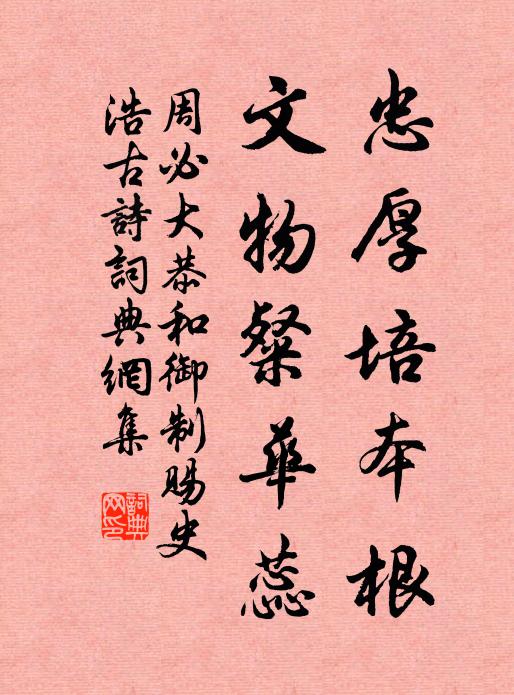 忠厚培本根
文物粲華蕊
周必大恭和御制賜史
浩古詩詞典網集
詞典網印